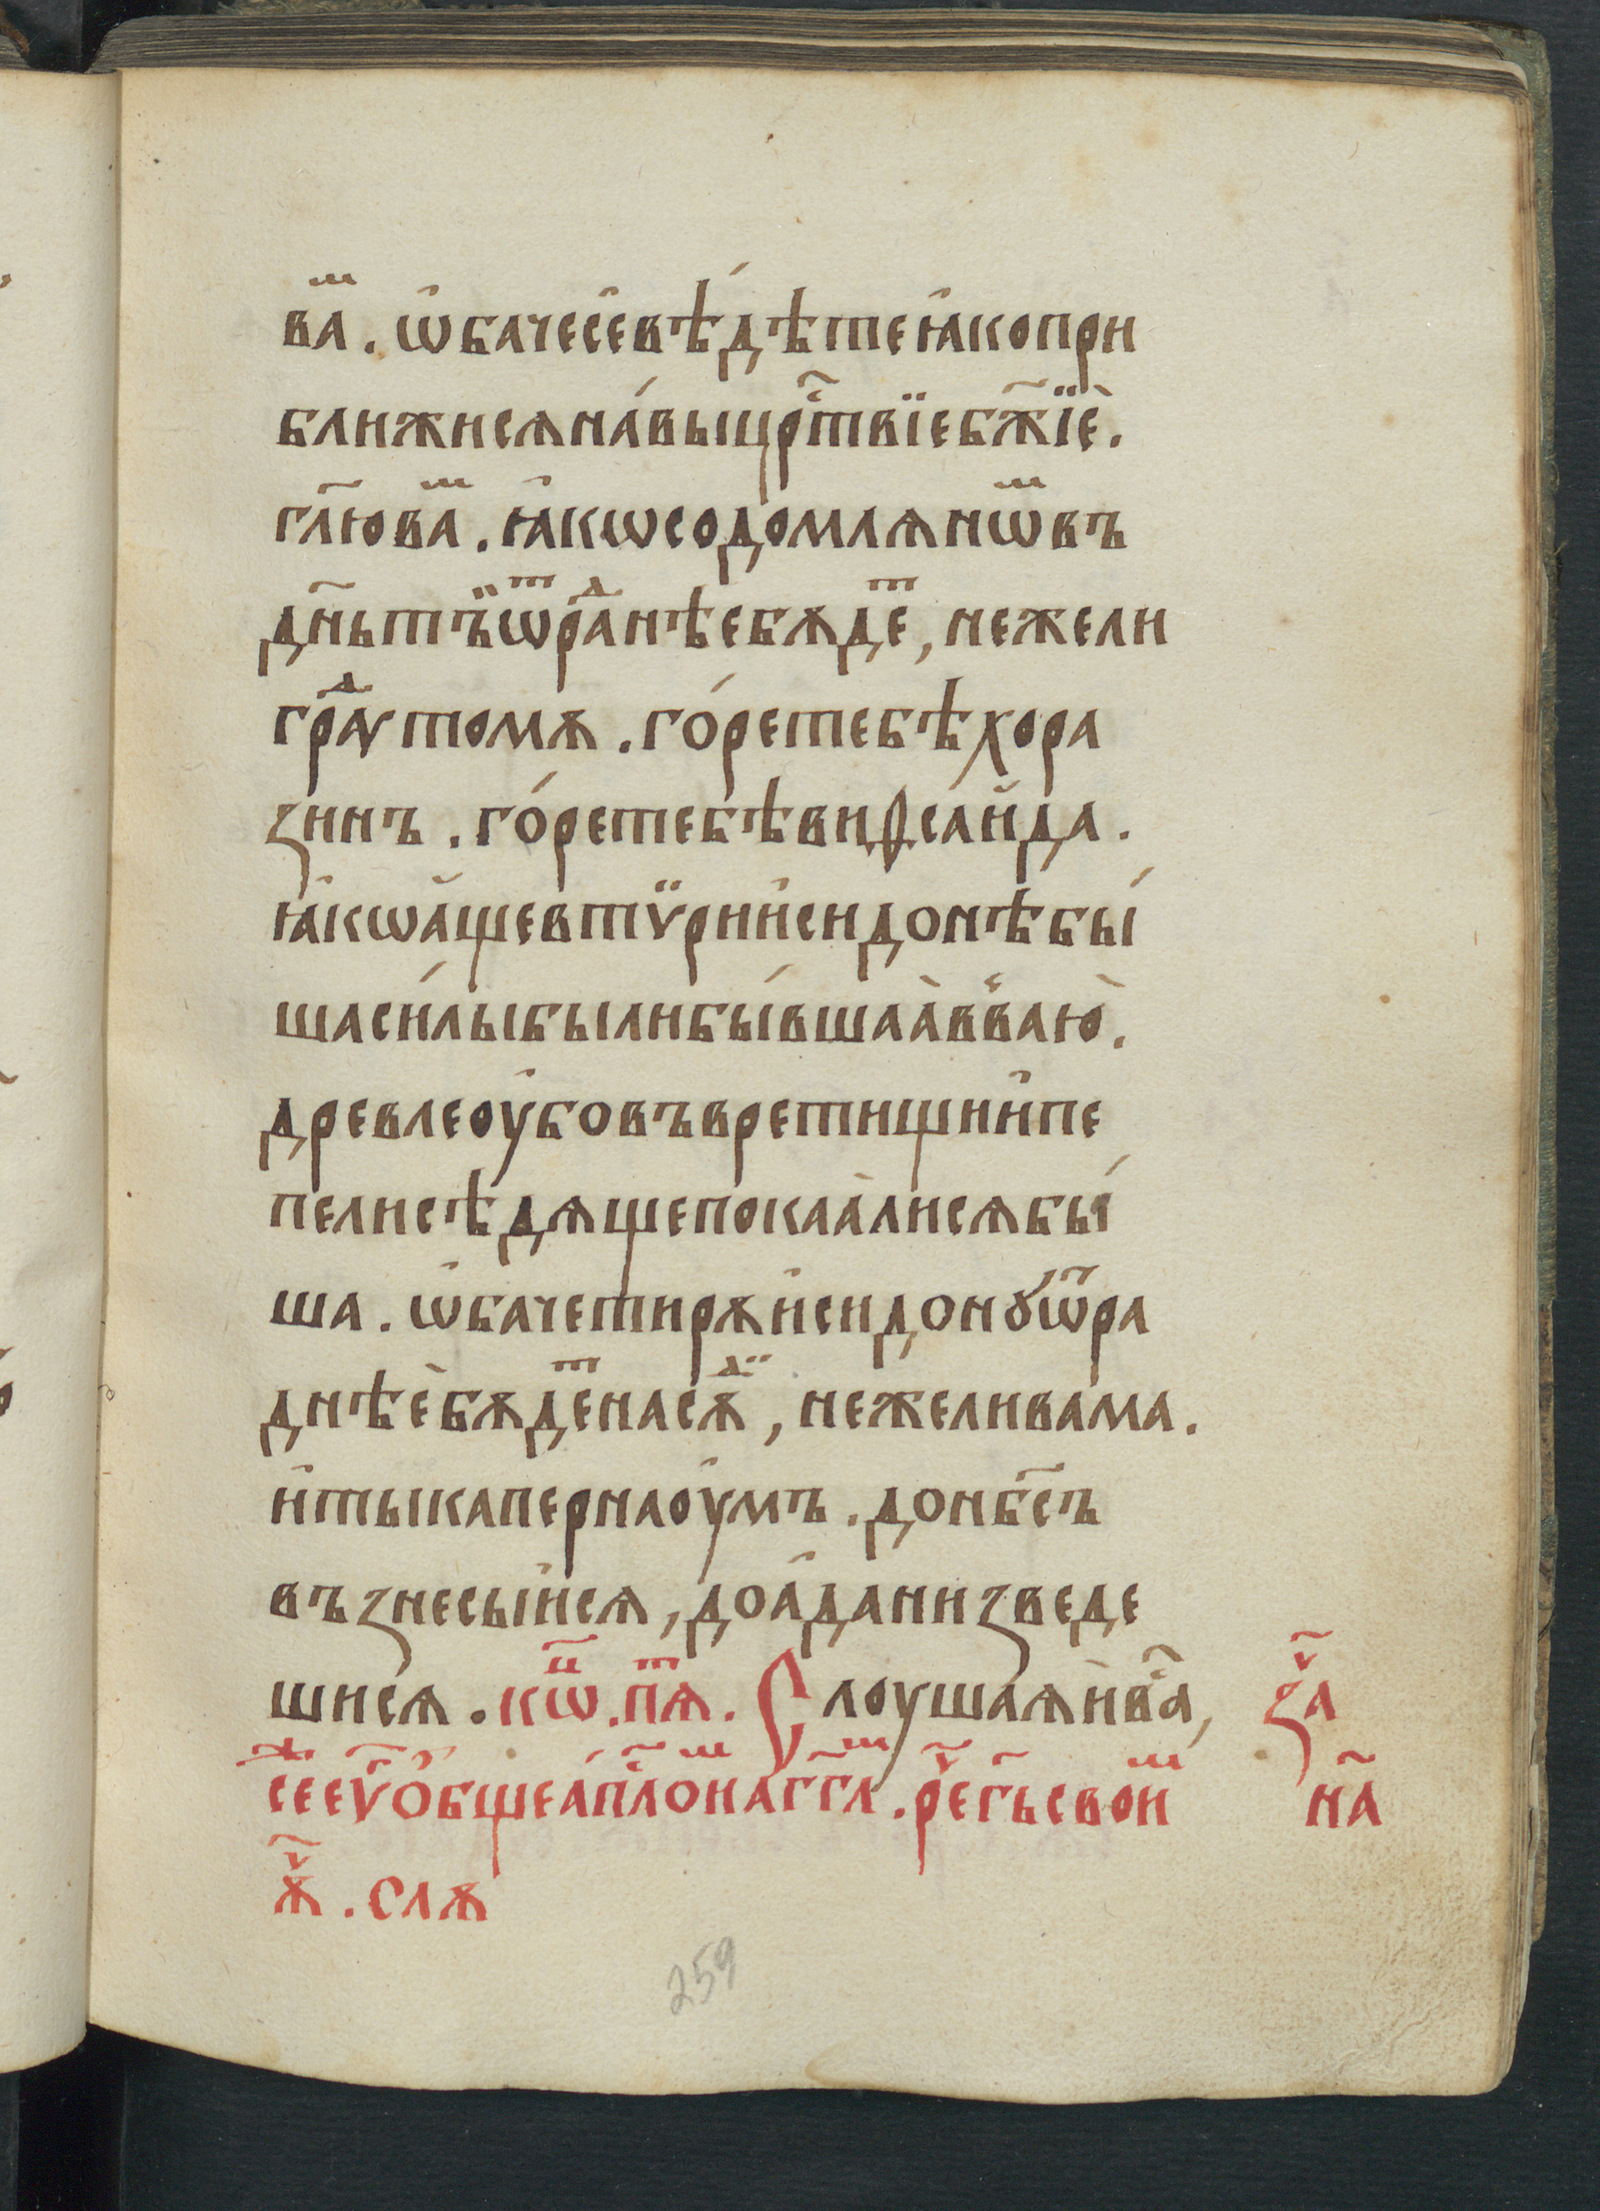 ва̑ⷨ . ѡ҆бачесѐвѣ́дѣтеꙗ҆копри
ближисѧна́выцрⷭ҇твїебж҃їѐ.
гл҃ювⷨа . ꙗ҆кѡсодомлѧнѡⷨвъ
дн҃ьтъӥѿраⷣнѣебѫдеⷮ, нежели
граⷣутомꙋ . го́ретебѣхора
ꙁинъ . го́ретебѣвиѳсаи҆да .
ꙗ҆кѡа҆щевтѷрии҆сидонѣбы́
шаси́лыбылибы́вшаѧ҆в̾ваю̀.
древлеоу҆бовъвретищии҆пе
пелисѣдѧщепокаа҆лисѧбы́
ша . ѡ҆бачетирѫи҆сидонꙋѿра
днѣѐбѫдеⷮнасѫⷣ, нежеливама.
и҆тыкапернаоу҆мъ . донб҃съ
въꙁнесыи҆сѧ, доа҆даниꙁведе
шисѧ . кѡⷰ҇ . пѧⷮ . Слоушаѧи҆ва́съ,
ꙁаⷱ҇
сеⷤеѵⷢ҇о҆бщеа҆пⷭ҇ломъи҆аггл҃ⷨ . реⷱ҇гь҃своиⷨ
на҃
ѫⷱ҇ . слѫ
259